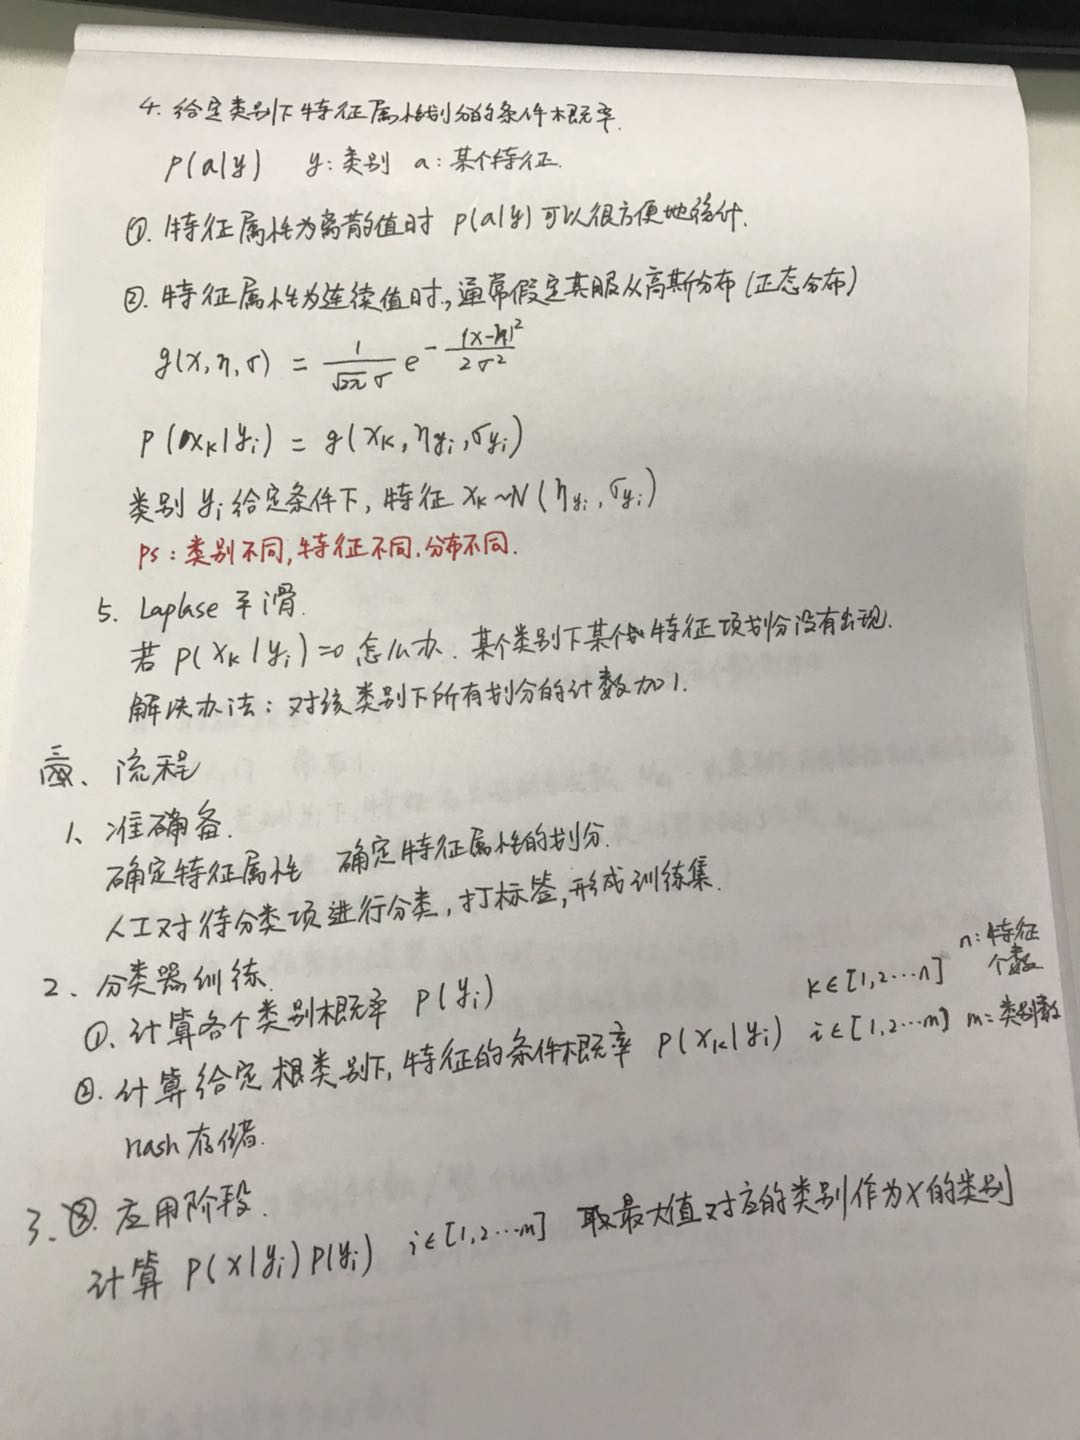 4. 给定类别下特征属性划分的条件概率.
P(a|y) y: 类别 a: 某个特征.
①. 特征属性为离散值时 p(a|y) 可以很方便地统计.
②. 特征属性为连续值时, 通常假定其服从高斯分布 (正态分布)
g(x, η, σ) = \frac{1}{\sqrt{2π} σ} e^{-\frac{(x-η)^2}{2σ^2}}
P(x_K|y_i) = g(x_K, η_{y_i}, σ_{y_i})
类别 y_i 给定条件下, 特征 x_K ~ N(η_{y_i}, σ_{y_i})
ps: 类别不同, 特征不同, 分布不同.
5. Laplase 平滑.
若 P(x_K|y_i)=0 怎么办. 某个类别下某个特征项划分没有出现.
解决办法: 对该类别下所有划分的计数加1.
三、流程
1、准确备.
确定特征属性 确定特征属性的划分.
人工对待分类项进行分类, 打标签, 形成训练集.
2、分类器训练.
①. 计算各个类别概率 P(y_i)
K∈[1,2…n] n: 特征个数
②. 计算给定根类别下, 特征的条件概率 P(x_K|y_i) i∈[1,2…m] m: 类别数
hash 存储.
3. ③. 应用阶段.
计算 P(x|y_i)P(y_i) i∈[1,2…m] 取最大值对应的类别作为X的类别